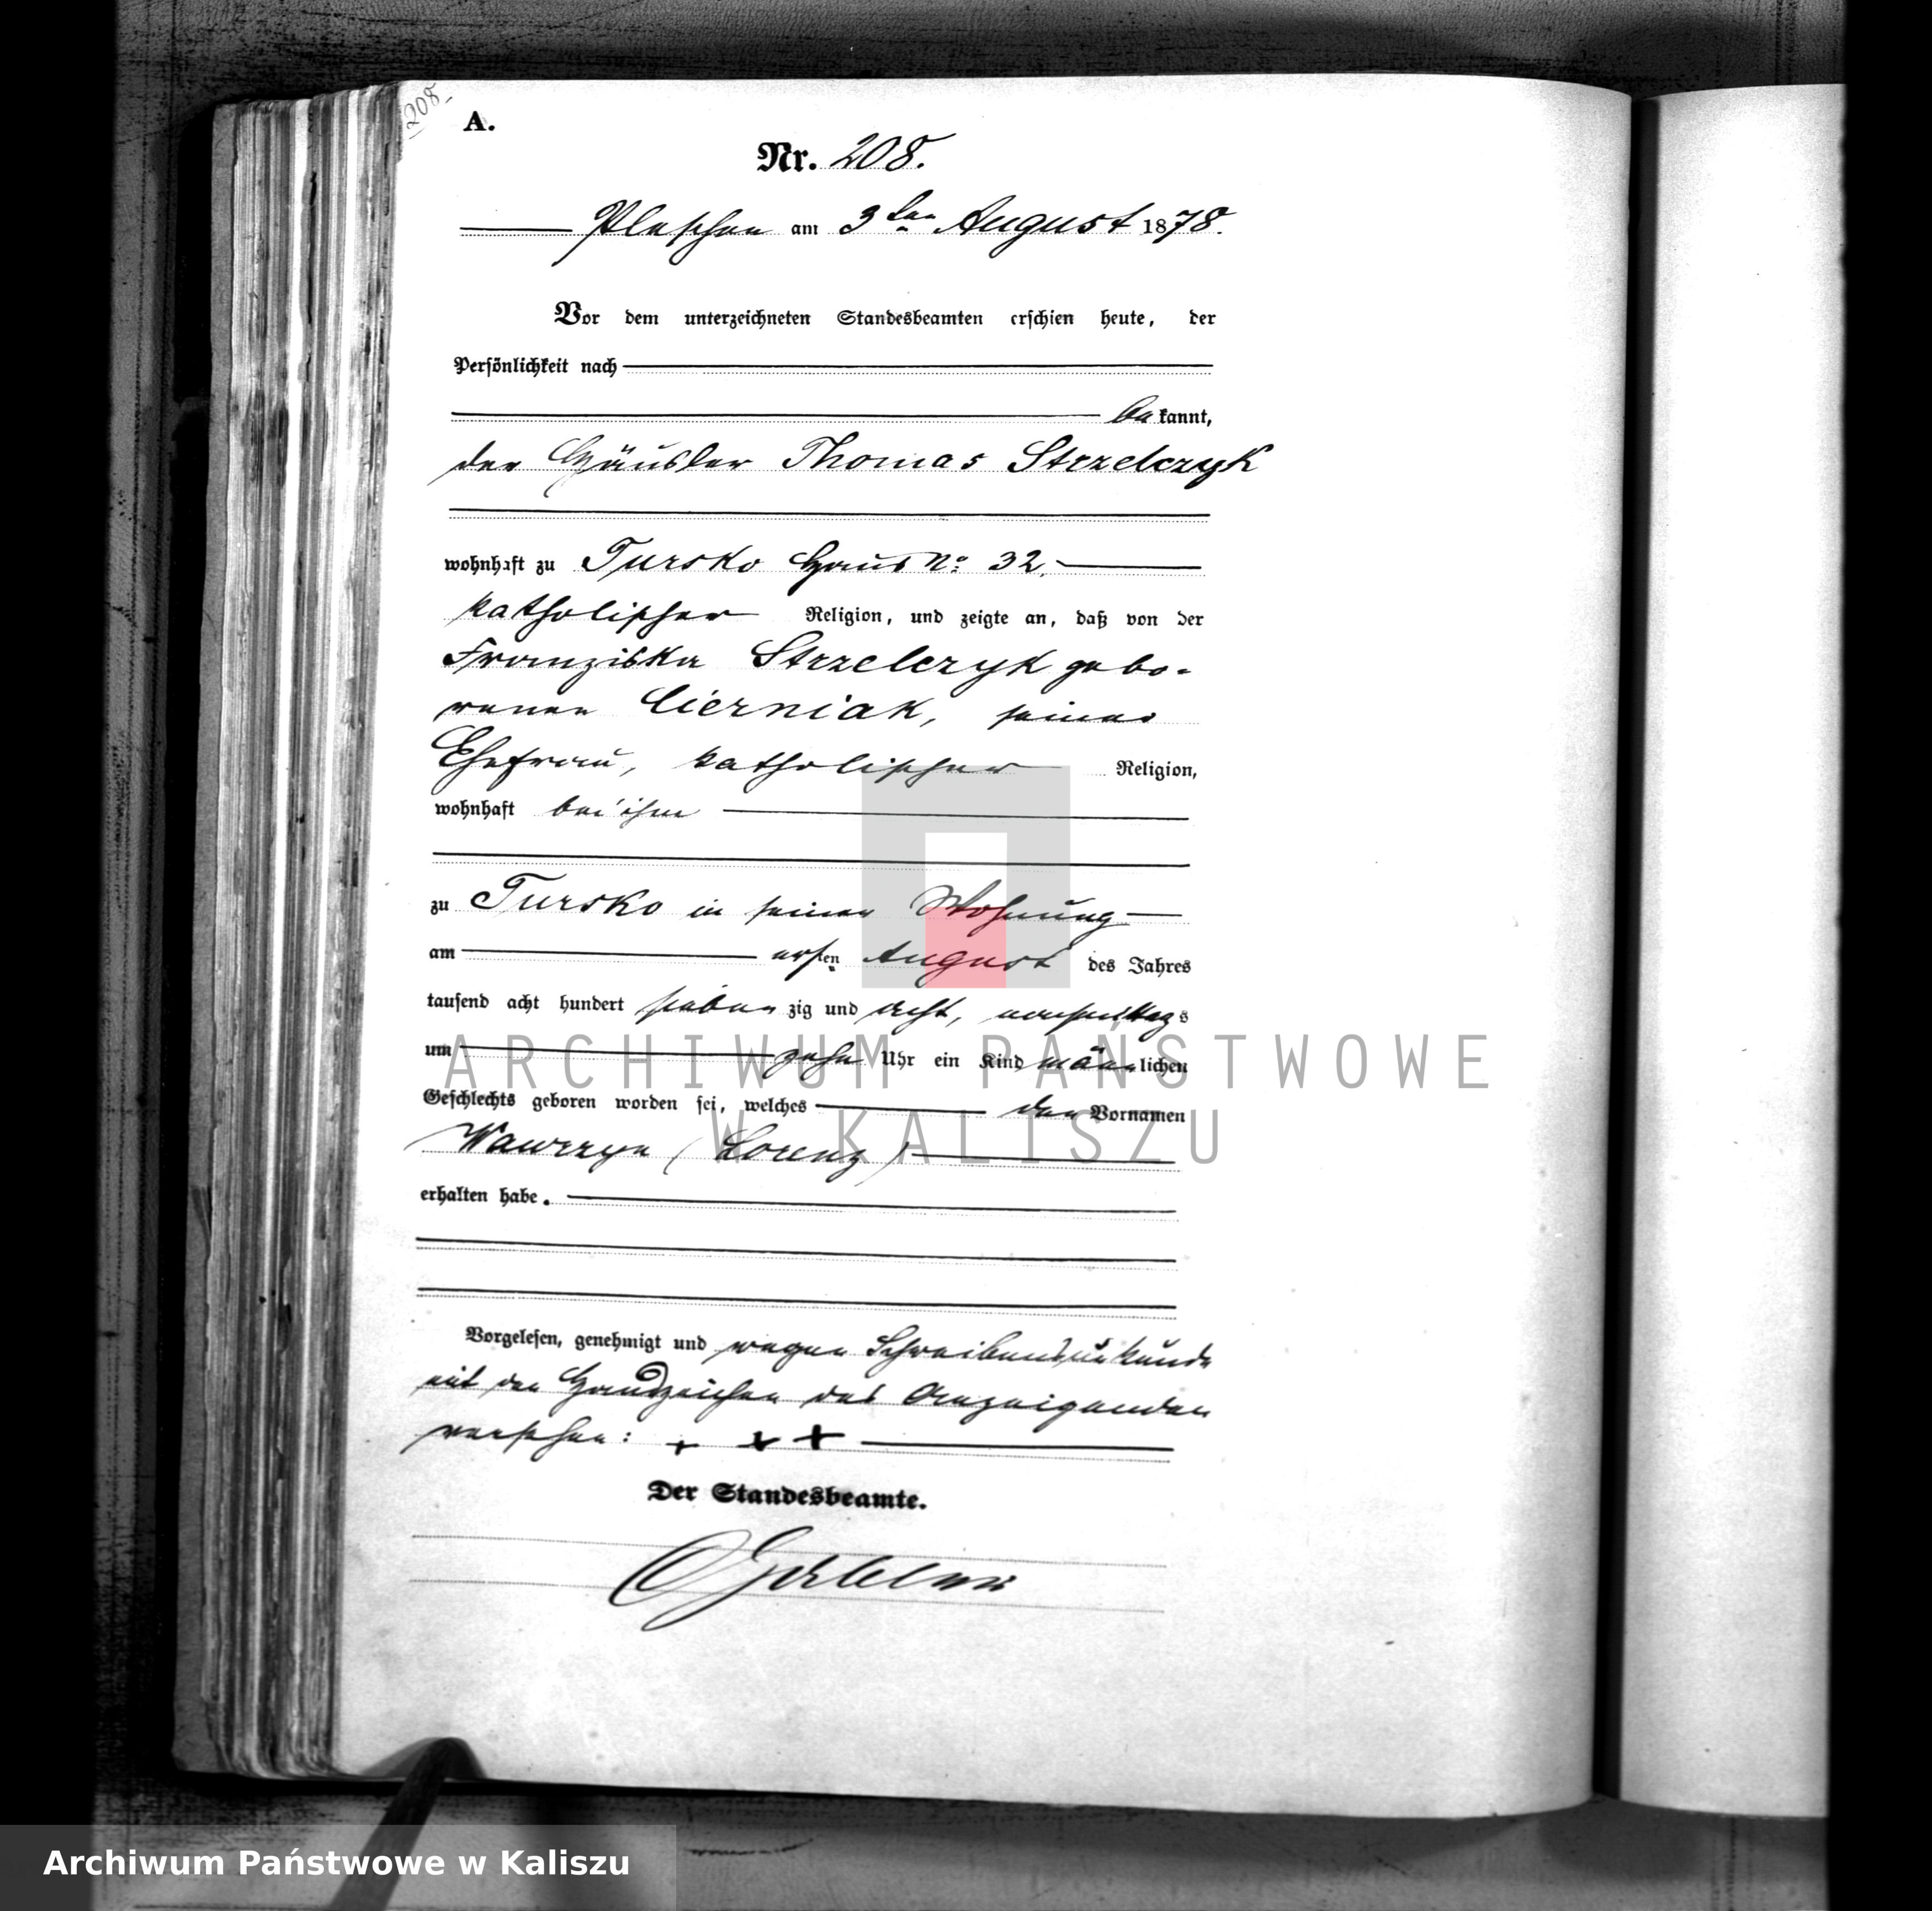 208.
A.
Nr. 208.
Pleschen am 3ten August 1878.
Vor dem unterzeichneten Standesbeamten erschien heute, der
Persönlichkeit nach
bekannt,
der Häusler Thomas Strzelczyk
wohnhaft zu Tursko Haus No. 32.
katholischer Religion, und zeigte an, daß von der
Franziska Strzelczyk gebo-
renen Cierniak, seiner
Ehefrau, katholischer Religion,
wohnhaft bei ihm
zu Tursko in seiner Wohnung
am ersten August des Jahres
tausend acht hundert siebenzig und acht, vormittags
um zehn Uhr ein Kind männlichen
Geschlechts geboren worden sei, welches den Vornamen
Wawrzyn (Lorenz)
erhalten habe.
Vorgelesen, genehmigt und wegen Schreibensunkunde
mit den Handzeichen des Anzeigenden
versehen: + + +
Der Standesbeamte.
ARCHIWUM PAŃSTWOWE
W KALISZU
Archiwum Państwowe w Kaliszu